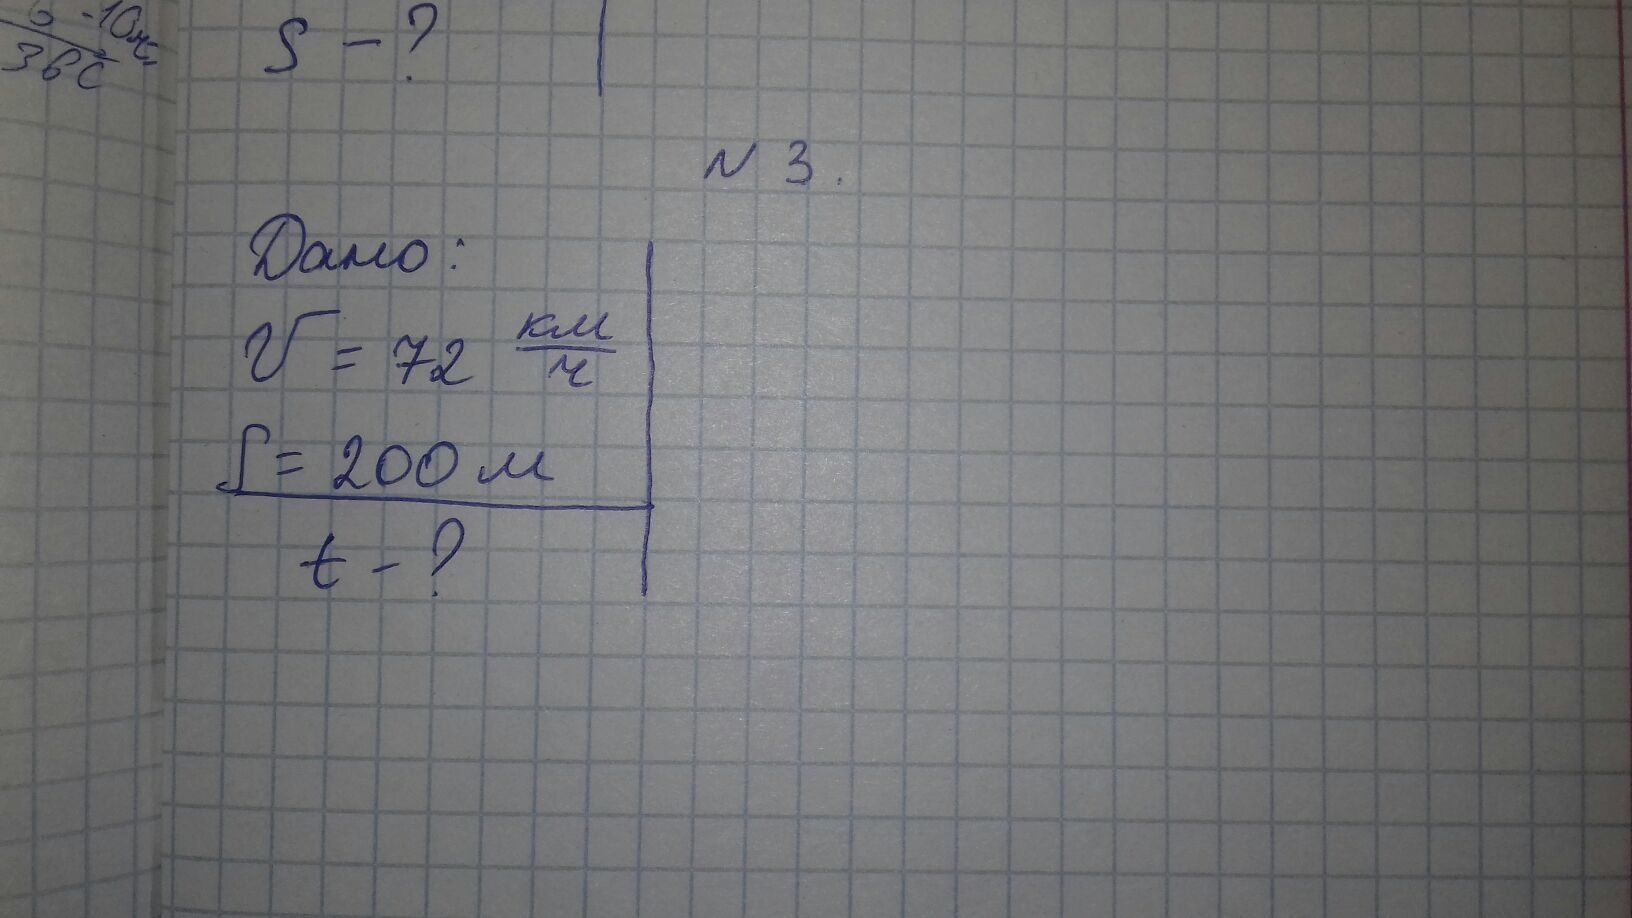 36с
S - ?
N 3.
Дано:
V = 72 км/ч
S = 200 м
t - ?